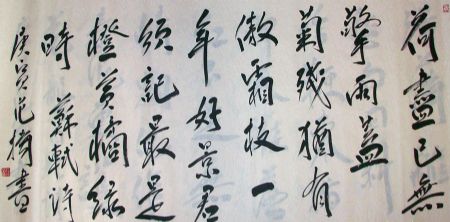 荷盡已無
擎雨蓋
菊殘猶有
傲霜枝一
年好景君
須記最是
橙黃橘綠
時 蘇軾詩
庚寅范書